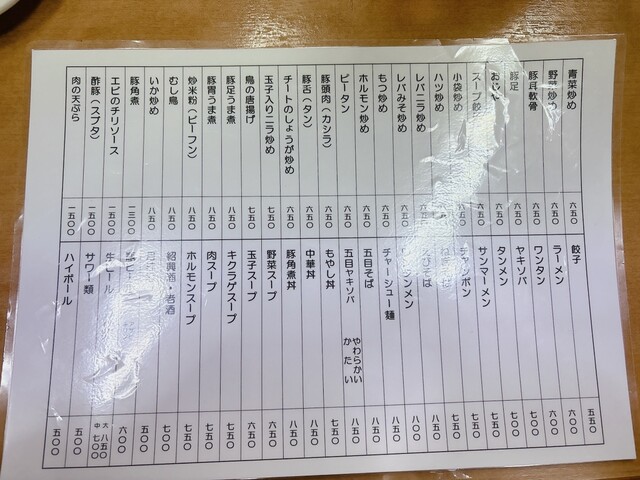 青菜炒め 六五〇
野菜炒め 六五〇
豚耳軟骨 六五〇
豚足 六五〇
おじや 六五〇
スープ餃子 六五〇
小袋炒め 六五〇
ハツ炒め 六五〇
レバニラ炒め 六五〇
レバみそ炒め 六五〇
もつ炒め 六五〇
ホルモン炒め 六五〇
ピータン 六五〇
豚頭肉（カシラ） 六五〇
豚舌（タン） 六五〇
チートのしょうが炒め 六五〇
玉子入りニラ炒め 七五〇
鳥の唐揚げ 七五〇
豚足うま煮 八五〇
豚胃うま煮 八五〇
炒米粉（ビーフン） 八五〇
むし鳥 八五〇
いか炒め 八五〇
豚角煮 一三〇〇
エビのチリソース 一五〇〇
酢豚（スブタ） 一五〇〇
肉の天ぷら 一五〇〇
餃子 五五〇
ラーメン 六〇〇
ワンタン 六〇〇
ヤキソバ 七〇〇
タンメン 七〇〇
サンマーメン 七五〇
チャンポン 七五〇
七五〇
えびそば 八五〇
ワンタンメン 八五〇
チャーシュー麺 八五〇
五目そば 八五〇
五目ヤキソバ やわらかい かたい 八五〇
もやし丼 七五〇
中華丼 八五〇
豚角煮丼 八五〇
野菜スープ 七五〇
玉子スープ 七五〇
キクラゲスープ 七五〇
肉スープ 七五〇
ホルモンスープ 七五〇
紹興酒・老酒 七〇〇
五〇〇
ビール 六〇〇
生ビール 大 八五〇 中 七〇〇
サワー類 五〇〇
ハイボール 五〇〇